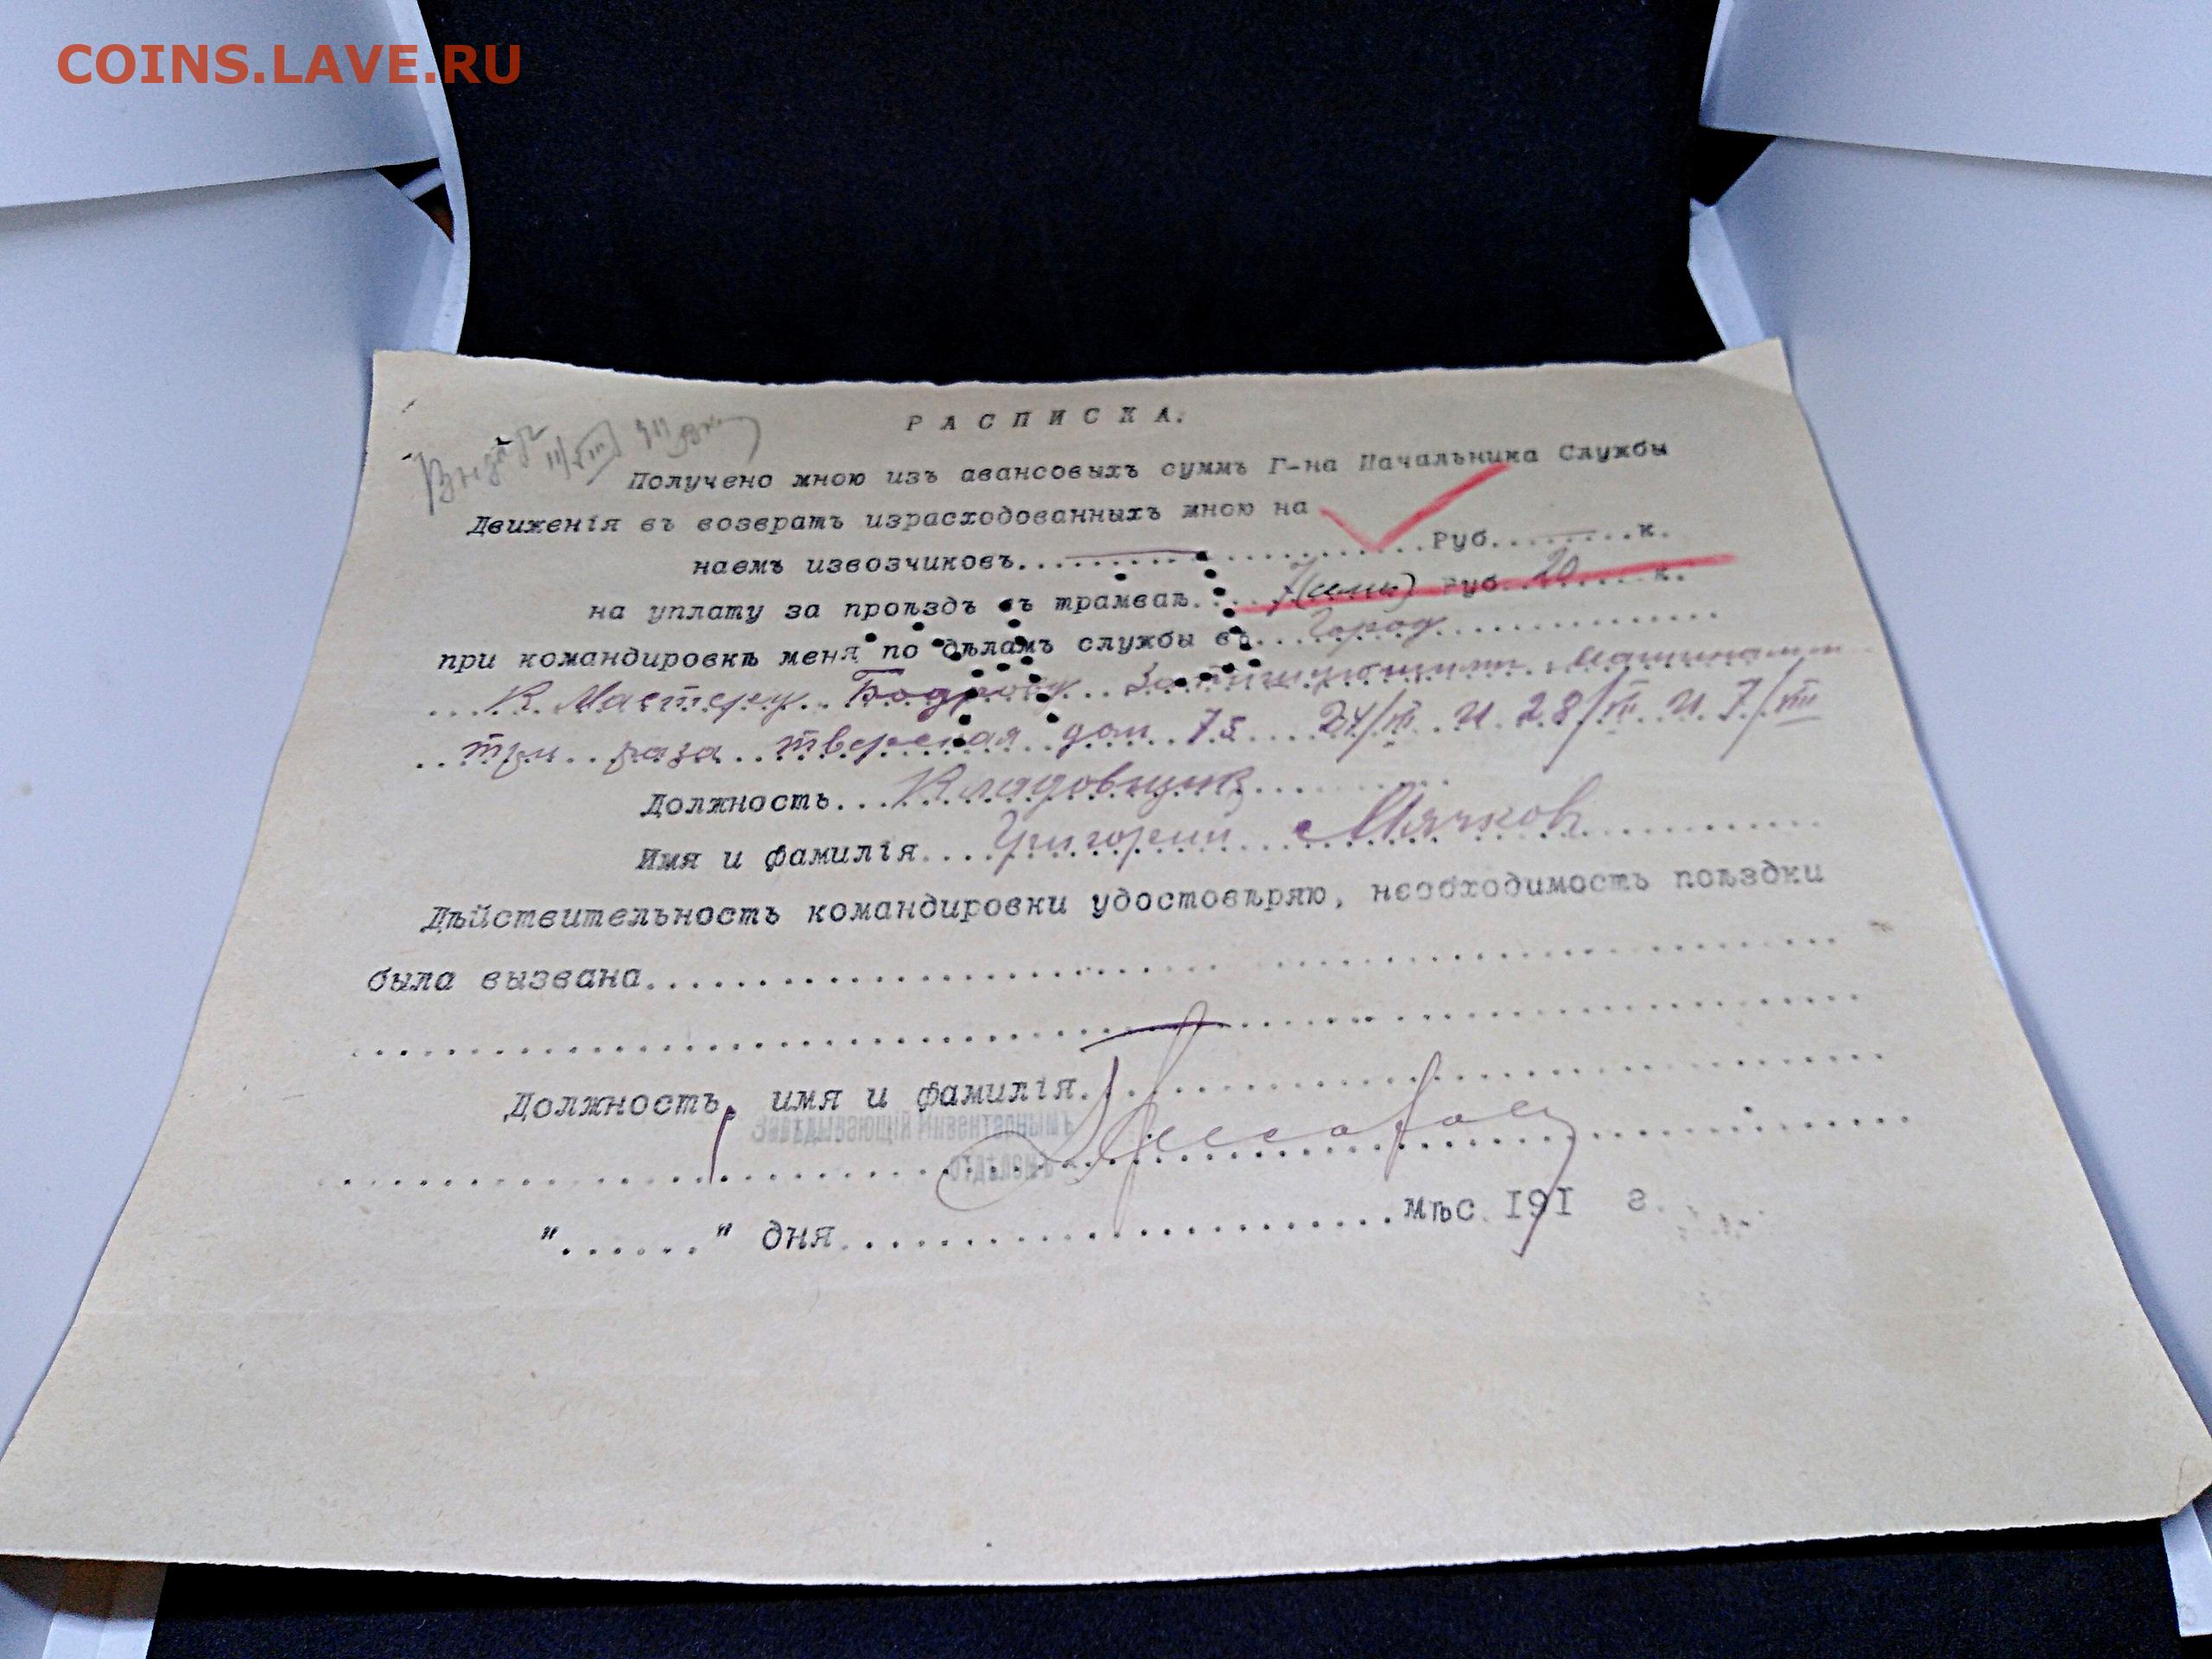 COINS.LAVE.RU
РАСПИСКА.
Получено мною изъ авансовыхъ суммъ Г-на Начальника Службы
Движенія въ возвратъ израсходованныхъ мною на
наемъ извозчиковъ.................Руб.........к.
на уплату за проѣздъ въ трамваѣ... 7 (семь) Руб. 20 ....к.
при командировкѣ меня по дѣламъ службы въ...Город...............
...К Мастеру.. Бодрову.. За пишущими машинами
..три..раза..тверская дом. 75... 24/III. и. 28/III и 7/III
Должность...Кладовщик..........
Имя и фамилія...Григорий... Мячков............
Дѣйствительность командировки удостовѣряю, необходимость поѣздки
была вызвана............................................
............................................................
Должность, имя и фамилія...............................
Завѣдывающій Инвентарнымъ
отдѣломъ
"......" дня.........................мѣс. 191 г.